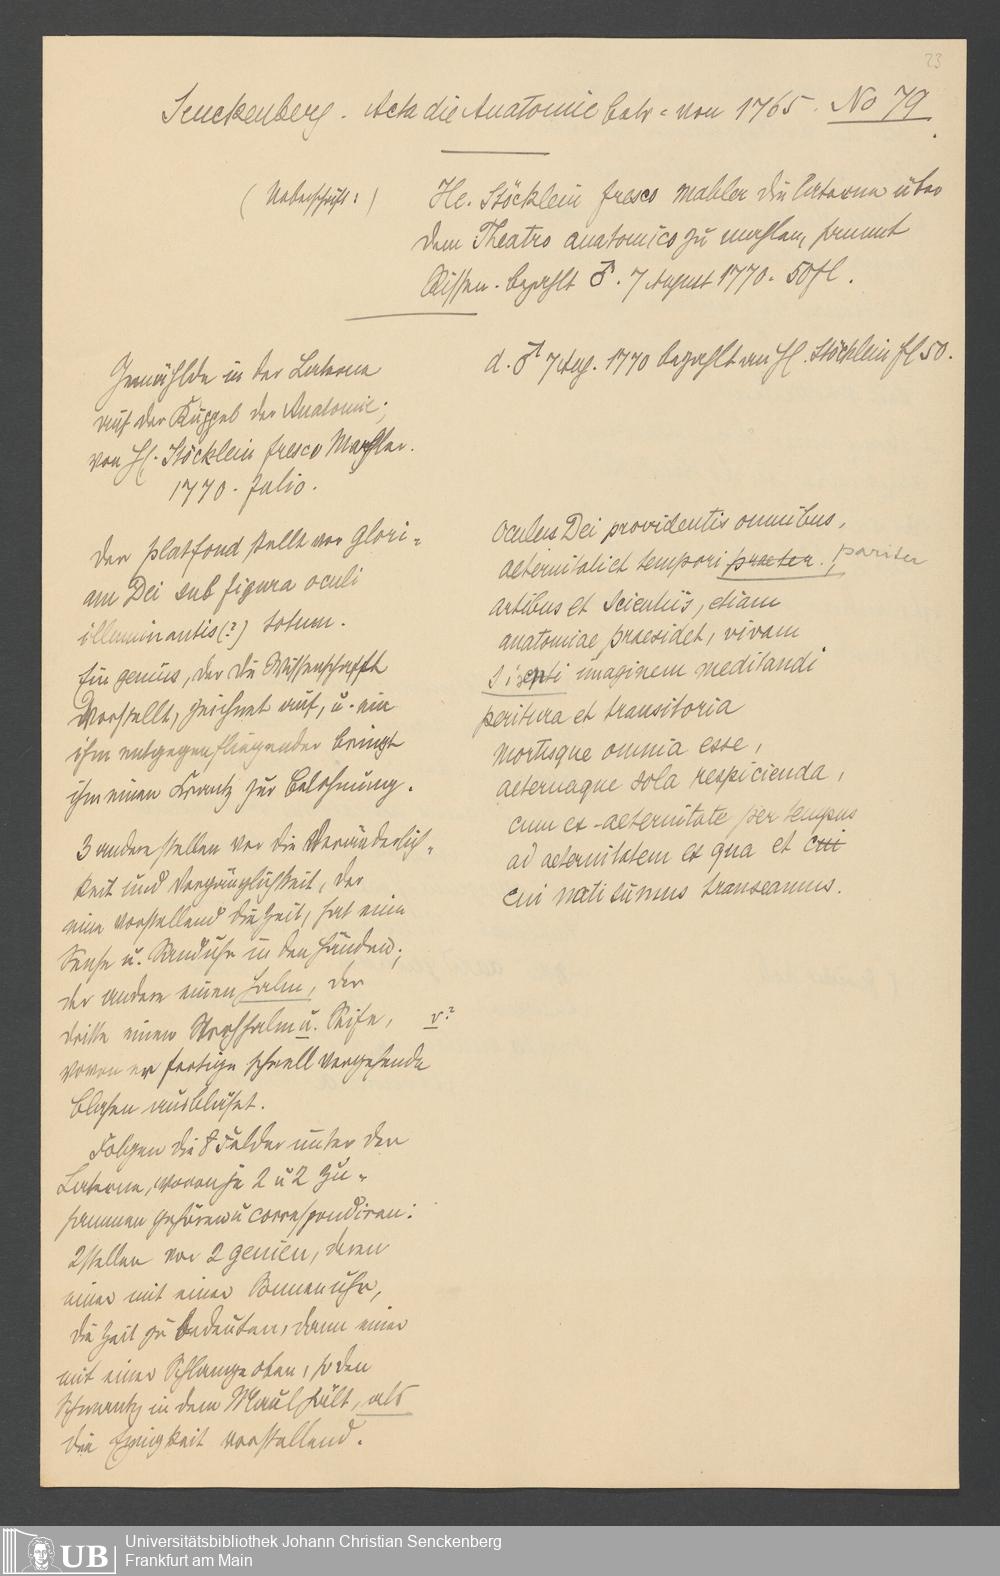 23
Senckenberg. Acta die Anatomie betr. von 1765. No 79
(Ueberschrift:)
He. Stöcklein fresco Mahler die Laterne über
dem Theatro anatomico zu mahlen, sammt
Rissen. bezahlt ♂. 7 August 1770. 50 fl.
d. ♂ 7 Aug. 1770 bezahlt an H. Stöcklein fl 50.
Gemählde in der Laterne
auf der Kuppel der Anatomie;
von H. Stöcklein fresco Mahler.
1770. Julio.
Der Platfond stellt vor Glori-
am Dei sub figura oculi
illuminantis(?) totum.
Ein genius, der die Wissenschafft
Vorstellt, zeichnet auf, u. ein
ihm entgegenfliegender bringt
ihm einen Krantz zur Belohnung.
3 andere stellen vor die Veränderlich-
keit und Vergänglichkeit, der
eine vorstellend die Zeit, hat eine
Sense u. Sanduhr in den Händen;
der andere einen Halm, der
dritte einen Strohhalm u. Seife, v?
wovon er fertige schnell vergehende
Blasen ausbläset.
Folgen die 8 Felder unter der
Laterne, wovon je 2 u 2 zu-
sammen gehören u correspondiren:
2 stellen vor 2 genien, deren
einer mit einer Sonnenuhr,
die Zeit zu bedeuten, dann einer
mit einer Schlange oben, so den
Schwantz in dem Maul hält, als
die Ewigkeit vorstellend.
Oculus Dei providentis omnibus,
aeternitati et tempori praeter., pariter
artibus et scientiis, etiam
anatomiae praesidet, vivam
sisenti imaginem meditandi
peritura et transitoria
mortisque omnia esse,
aeternaque sola respicienda,
cum ex aeternitate per tempus
ad aeternitatem ex qua et cui
cui nati sumus transeamus.
Universitätsbibliothek Johann Christian Senckenberg
Frankfurt am Main
UB